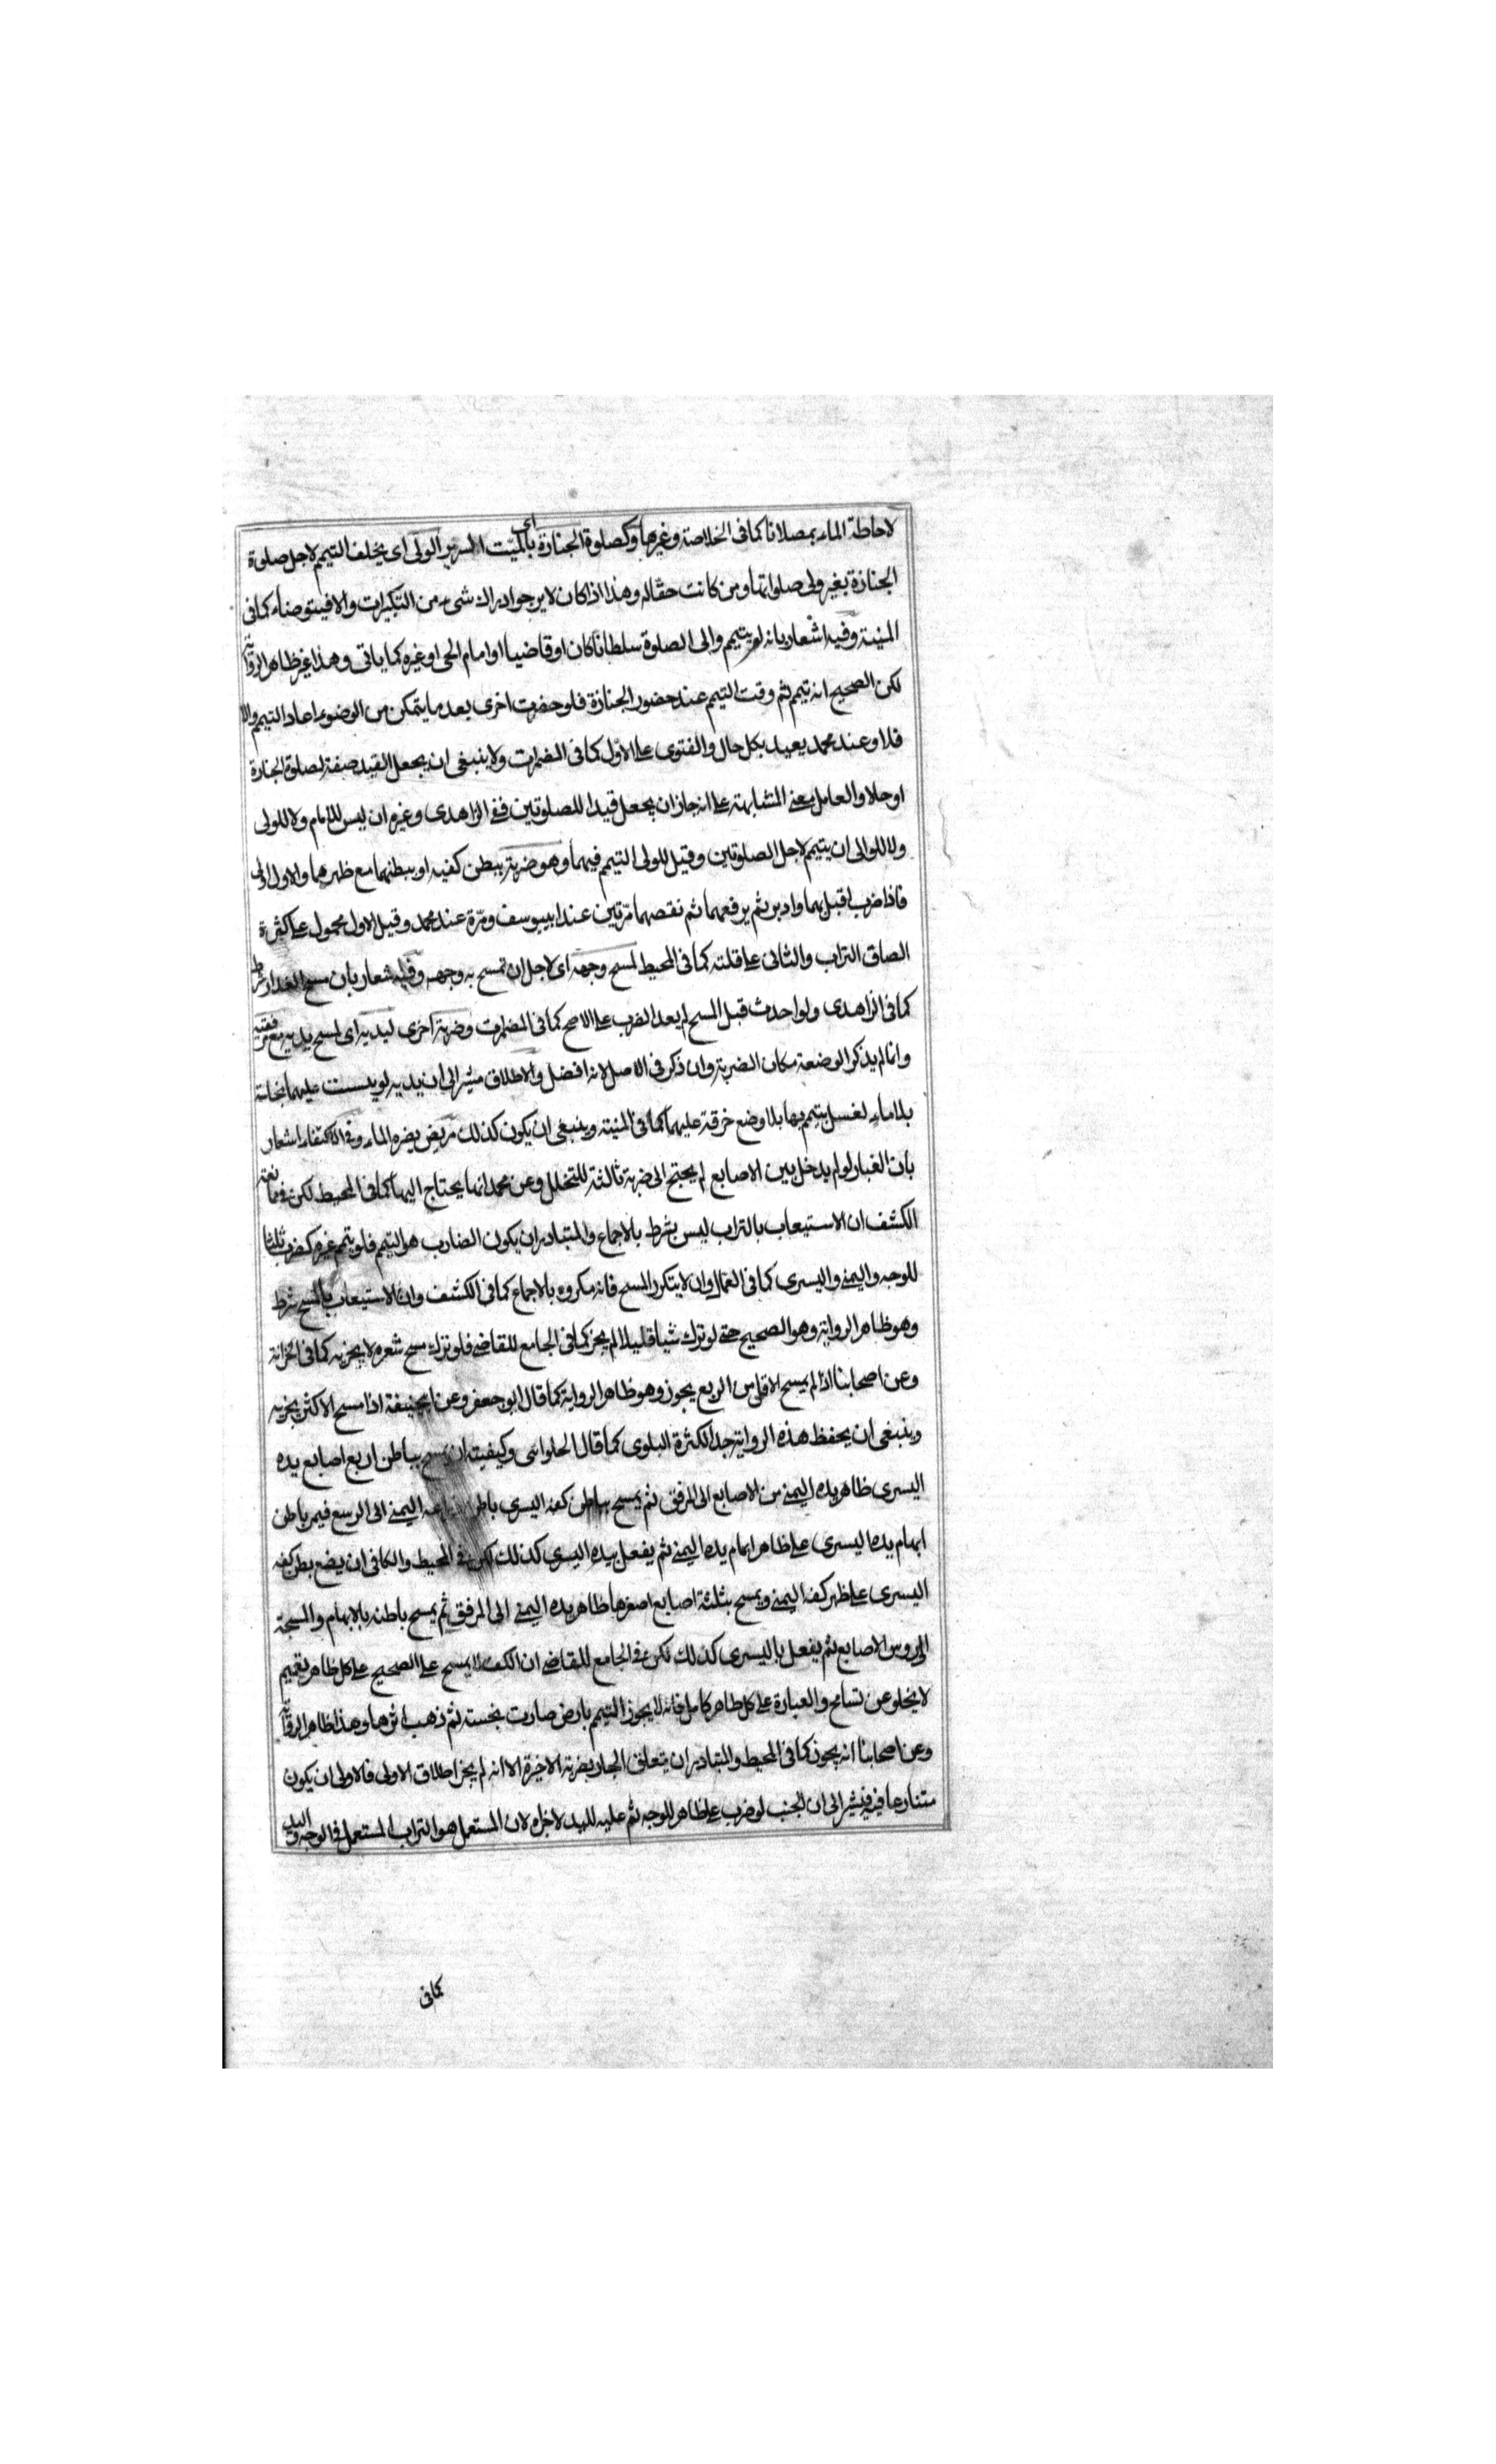 لاحاطة الماء بمصلانا كما فى الخلاصة وغيرها وكصلوة الجنازة اى بالميت السرير الولى اى يخلف التيمم لاجل صلوة
الجنازة بغير ولى صلواتها ومن كانت حقا له وهذا اذا كان لا يرجو ادراك شىء من التكبيرات والا فيتوضاء كما فى
المنية وفيه اشعار بانه لم يتيمم والى الصلوة سلطانا كان او قاضيا او امام الحى او غيره كما ياتى وهذا غير ظاهر الرواية
لكن الصحيح انه تيمم ثم وقت التيمم عند حضور الجنازة فلو حضرت اخرى بعد ما يتمكن من الوضوء اعاد التيمم والا
فلا وعند محمد يعيد بكل حال والفتوى على الاول كما فى المضمرات ولا ينبغى ان يجعل القيد صفة لصلوة الجنازة
او حلا والعامل معنى المشابهة على انه جاز ان يجعل قيدا للصلوتين ففى الزاهدى وغيره ان ليس للامام ولا للولى
ولا للوالى ان يتيمم لاجل الصلوتين وقيل للولى التيمم فيهما وهو ضربة ببطن كفيه او ببطنهما مع ظهرهما والاول اولى
فاذا ضرب اقبل بهما وادبر ثم يرفعهما ثم نفضهما مرتين عند ابيوسف ومرة عند محمد وقيل الاول محمول على كثرة
الصاق التراب والثانى على قلته كما فى المحيط لمسح وجهه اى لاجل ان تمسح به وجهه وفيه شعار بان مسح العذار شرط
كما فى الزاهدى ولو احدث قبل المسح لم يعد الضرب على الاصح كما فى المضمرات وضربة اخرى ليديه اى لمسح يديه مع مرفقيه
وانما لم يذكر الوضعة مكان الضربة وان ذكر فى الاصل لانه افضل والاطلاق مشير الى ان يديه لو يبست عليهما نجاسة
بلا ماء لغسل يتيمم بها بلا وضع خرقة عليهما كما فى المنية وينبغى ان يكون كذلك مريض يضره الماء وفى الاكتفاء اشعار
بان الغبار لو لم يدخل بين الاصابع لم يحتج الى ضربة ثالثة للتخلل وعن محمد انما يحتاج اليها كما فى المحيط لكن فى
الكشف ان الاستيعاب بالتراب ليس بشرط بالاجماع والمتبادر ان يكون الضارب هو التيمم فلو يتمم غيره كضرب ثلثا
للوجه واليمنى واليسرى كما فى العمال وان لا يتكرر المسح فانه مكروه بالاجماع كما فى الكشف وان الاستيعاب بالمسح شرط
وهو ظاهر الرواية وهو الصحيح حتى لو ترك شيا قليلا لم يجز كما فى الجامع للقاضى فلو ترك مسح شعره لا يجزيه كما فى الخزانة
وعن اصحابنا اذا لم يمسح الاقل من الربع يجوز وهو ظاهر الرواية كما قال ابو جعفر وعن ابيحنيفة اذا مسح الاكثر يجزيه
وينبغى ان يحفظ هذه الرواية جدا لكثرة البلوى كما قال الحلوانى وكيفيته ان يمسح بباطن اربع اصابع يده
اليسرى ظاهر يده اليمنى من الاصابع الى المرفق ثم يمسح بباطن كفه اليسرى باطن ذراعه اليمنى الى الرسغ فيمر باطن
ابهام يده اليسرى على ظاهر ابهام يده اليمنى ثم يفعل بيده اليسرى كذلك لكن فى المحيط والكافى ان يضع بطن كفه
اليسرى على ظهر كفه اليمنى ويمسح بثلثة اصابع اصغرها ظاهر يده اليمنى الى المرفق ثم يمسح باطنه بالابهام والمسبحة
الى روس الاصابع ثم يفعل باليسرى كذلك لكن فى الجامع للقاضى ان الكف لا يمسح على الصحيح على كل طاهر تقييم
لا يخلو عن تسامح والعبارة على كل طاهر كامل فانه لا يجوز التيمم بارض صارت نجسة ثم ذهب اثرها وهذا ظاهر الرواية
وعن اصحابنا انه يجوز كما فى المحيط والمتبادر ان يتعلق الجار بضربة الاخيرة الا انه لم يجز اطلاق الاولى فالاولى ان يكون
متنازعا فيه فيشير الى ان الجنب لو ضرب على ظاهر للوجه ثم عليه لليد لاجزاه لان المستعمل هو التراب المستعمل فى الوجه واليد
كما فى